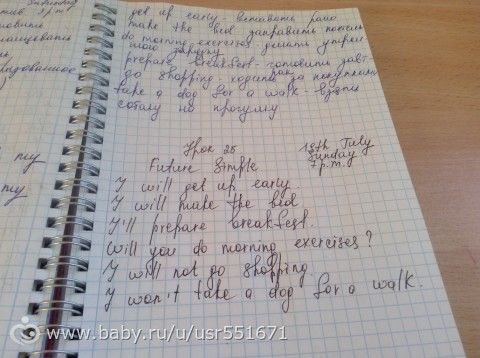 get up early - вставать рано
make the bed заправить постель
do morning exercises делать утрен
нюю зарядку
prepare breakfest - готовить завт-
рак
go shopping - ходить за покупками
take a dog for a walk - взять
собаку на прогулку
Урок 25
18th, July
Sunday
7 p.m.
Future Simple
I will get up early.
I will make the bed
I'll prepare breakfest.
Will you do morning exercises?
I will not go shopping.
I won't take a dog for a walk.
му
му
www.baby.ru/u/usr551671